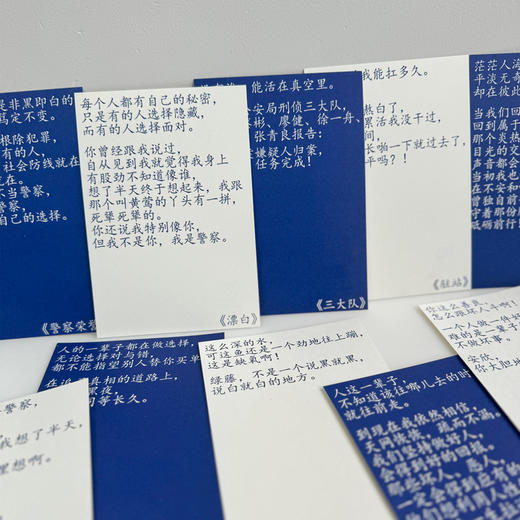 是非黑即白的
笃定不变。
根除犯罪，
有的人，
社会防线就在
在。
不当警察，
警察，
自己的选择。
《警察荣誉
每个人都有自己的秘密，
只是有的人选择隐藏，
而有的人选择面对。
你曾经跟我说过，
自从见到我就觉得我身上
有股劲不知道像谁，
想了半天终于想起来，我跟
那个叫黄莺的丫头有一拼，
死犟死犟的。
你还说我特别像你，
但我不是你，我是警察。
《漂白》
能活在真空里。
安局刑侦三大队，
彬、廖健、徐一舟、
张青良报告：
嫌疑人归案，
任务完成！
《三大队》
我能扛多久。
熬白了，
累活我没干过，
间，
长啪一下就过了，
平吗？！
《驻站》
茫茫人海
平淡无奇
却在彼此
当我们
回到属于
那个炎热
目光的交
声音都会
当初我也
在不安和
曾独自前
守着那份
砥砺前行！
人的一辈子都在做选择，
无论选择对与错，
都不能指望别人替你买单
在追 真相的道路上，
黑夜
同等长久。
这么深的水，
可这鱼还是一个劲地往上蹦，
这是缺氧啊！
绿藤，不是一个说黑就黑，
说白就白的地方。
你这么善良，
怎么跟坏人斗啊！
一个人做一件好
难的是一辈子
不做坏事。
安欣，
你大胆地
警察，
我想了半天，
里想啊。
人这一辈子，
不知道该往哪儿去的时
就往前走。
到现在我依然相信，
天网恢恢，疏而不漏。
我们坚持做好人，
会得到好的回报。
那些坏人、恶人，
一定会得到应有的